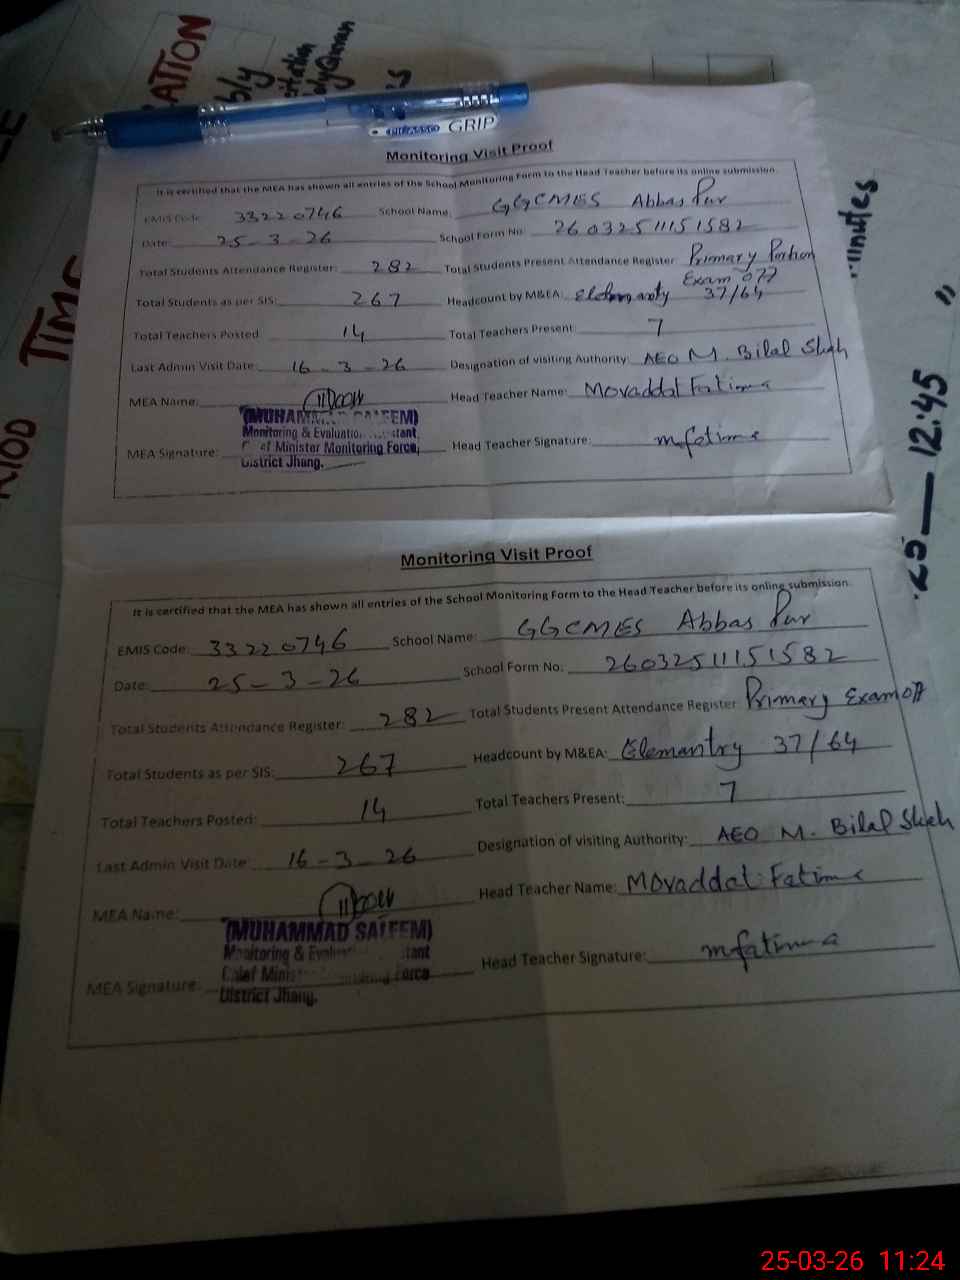 ATION
b/y
GRIP
Monitoring Visit Proof
It is certified that the MEA has shown all entries of the School Monitoring Form to the Head Teacher before its online submission.
EMIS Code: 33220746 School Name: GGCMES Abbas Pur
Date: 25-3-26 School Form No: 26032511151582
Total Students Attendance Register: 282 Total Students Present Attendance Register Primary Portion
Exam off
Total Students as per SIS: 267 Headcount by M&EA: 37/64
Total Teachers Posted 14 Total Teachers Present: 7
Last Admin Visit Date: 16-3-26 Designation of visiting Authority: AEO M. Bilal
MEA Name: Head Teacher Name: Movaddat Fatima
(MUHAMMAD SALEEM)
Monitoring & Evaluation
Minister Monitoring Force,
District Jhang.
MEA Signature: Head Teacher Signature: mfatima
minutes
12:45
TIME
Monitoring Visit Proof
It is certified that the MEA has shown all entries of the School Monitoring Form to the Head Teacher before its online submission.
EMIS Code: 33220746 School Name: GGCMES Abbas Pur
Date: 25-3-26 School Form No: 26032511151582
Total Students Attendance Register: 282 Total Students Present Attendance Register Primary Exam off
Total Students as per SIS: 267 Headcount by M&EA: Elemantry 37/64
Total Teachers Posted: 14 Total Teachers Present: 7
Last Admin Visit Date: 16-3-26 Designation of visiting Authority: AEO M. Bilal
MEA Name: Head Teacher Name: Movaddat Fatima
(MUHAMMAD SALEEM)
Monitoring &
Chief Force
District Jhang.
MEA Signature: Head Teacher Signature: mfatima
25-03-26 11:24